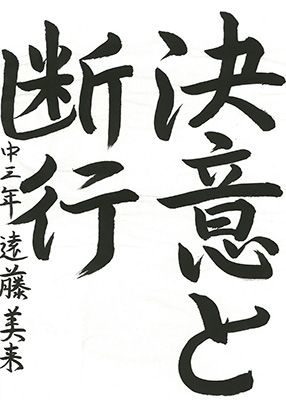 決意と
断行
中三年 遠藤美来